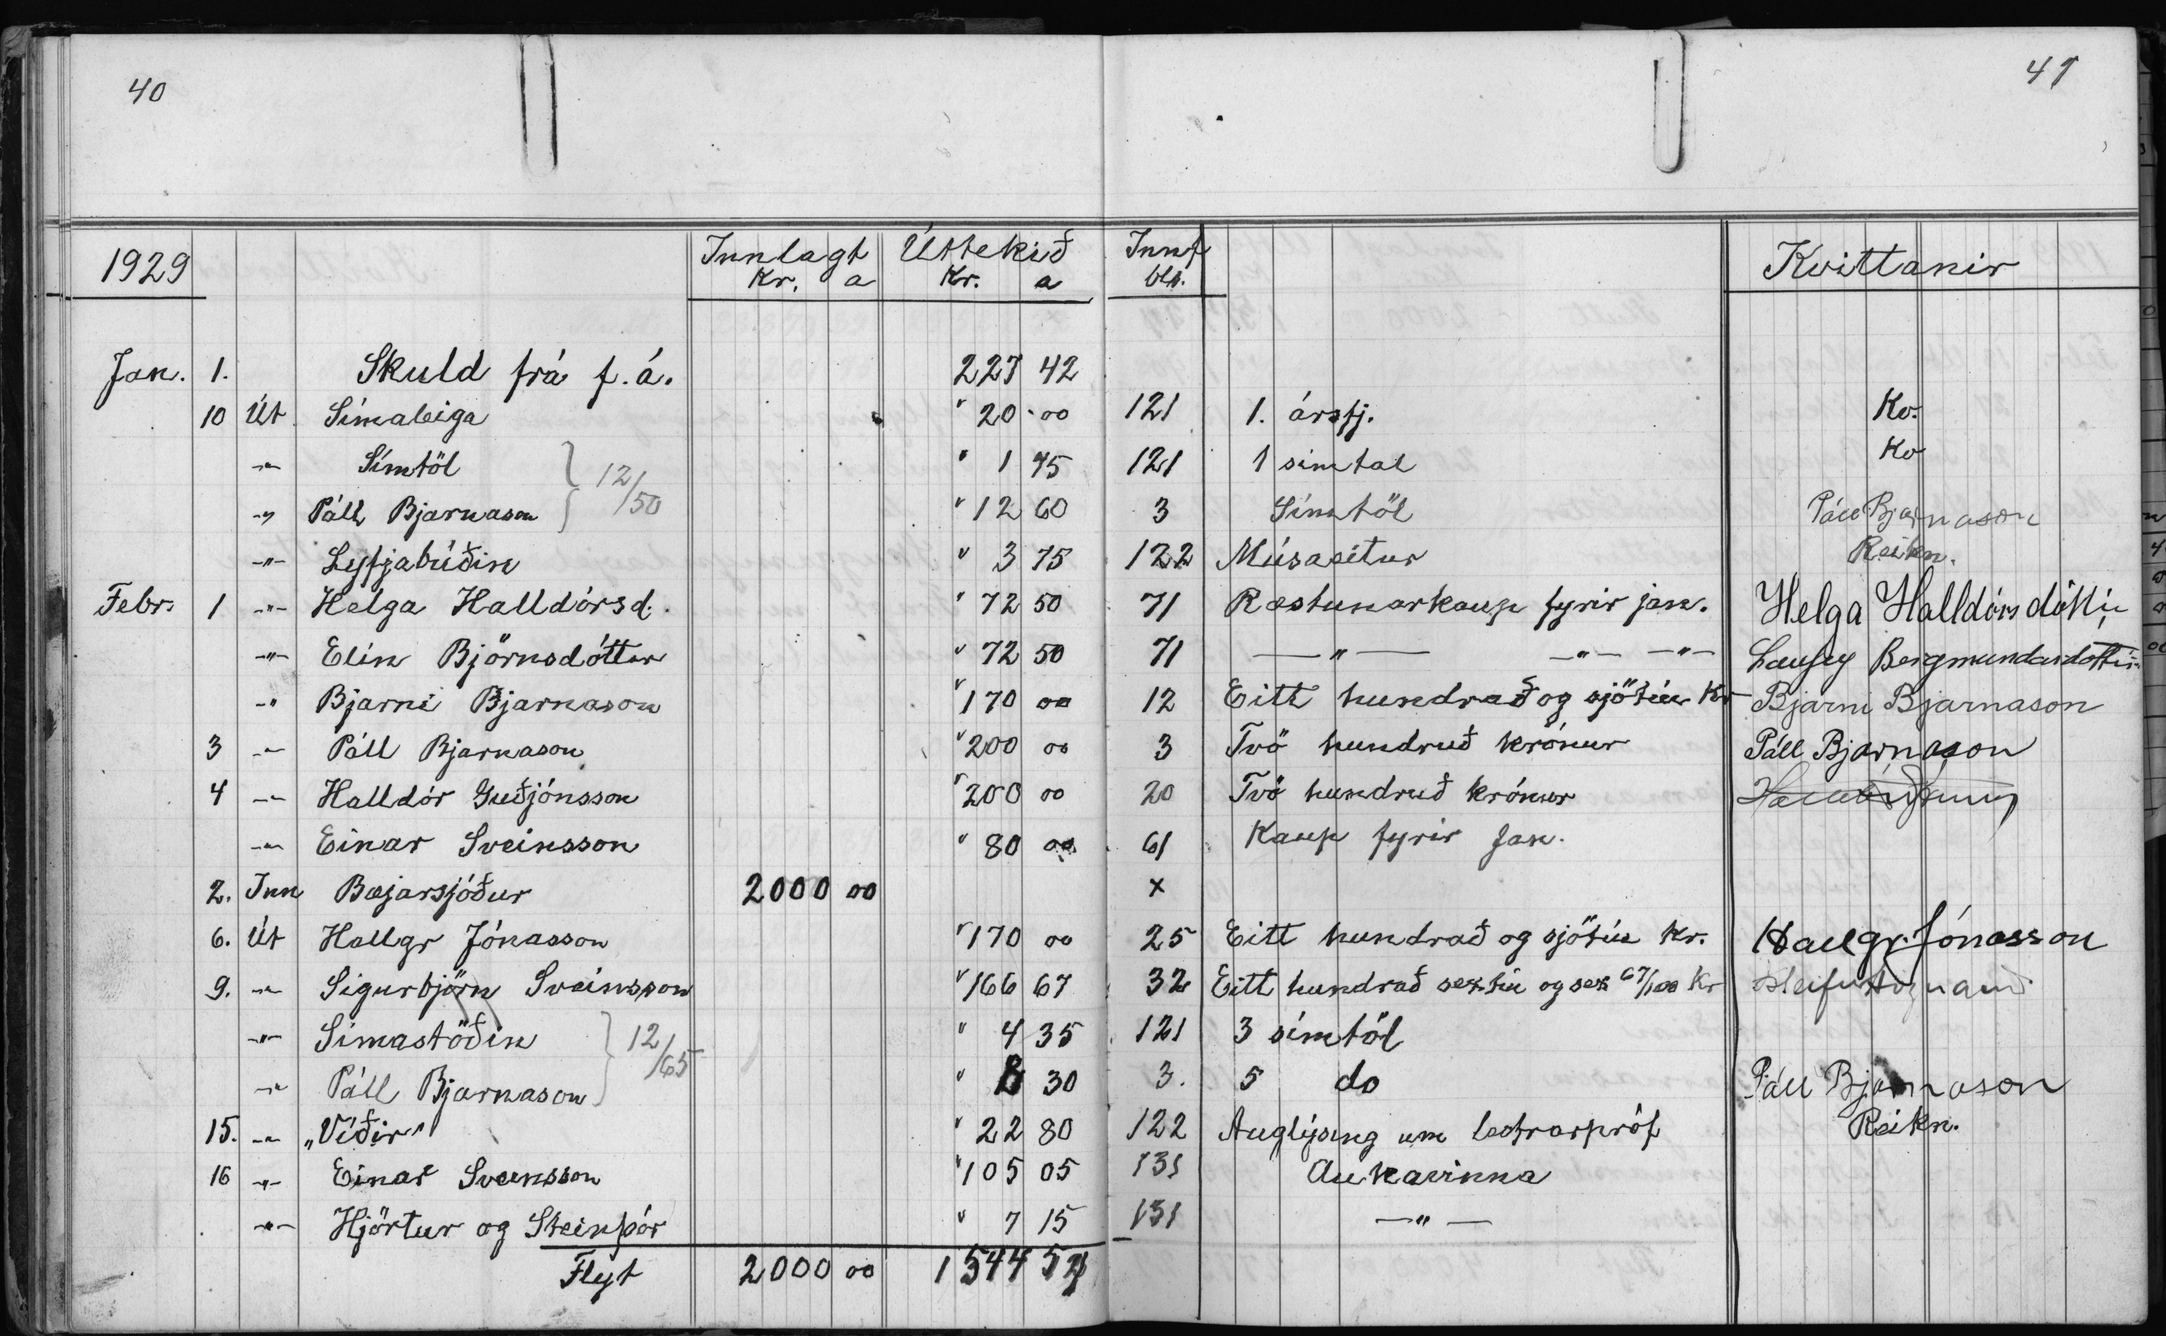 40
41
1929 Innlagt Úttekið Innf Kvittanir
Kr. a Kr. a bls.
Jan. 1. Skuld frá f. á. 227 42
10 Út Símaleiga " 20 00 121 1. ársfj. Kv.
-"- Símtöl 12/50 " 1 75 121 1 símtal Kv
-"- Páll Bjarnason " 12 60 3 Símtöl Páll Bjarnason
-"- Lyfjabúðin " 3 75 122 Músaeitur Reikn.
Febr. 1 -"- Helga Halldórsd. " 72 50 71 Ræstunarkaup fyrir jan. Helga Halldórsdóttir
-"- Elín Björnsdóttir " 72 50 71 -"- -"- -"- Laufey Bergmundardóttir
-"- Bjarni Bjarnason " 170 00 12 Eitt hundrað og sjötíu Kr Bjarni Bjarnason
3 -"- Páll Bjarnason " 200 00 3 Tvö hundruð krónur Páll Bjarnason
4 -"- Halldór Guðjónsson " 200 00 20 Tvö hundruð krónur
-"- Einar Sveinsson " 80 00 61 Kaup fyrir Jan.
2. Inn Bæjarsjóður 2000 00 x
6. Út Hallgr Jónasson " 170 00 25 Eitt hundrað og sjötíu Kr. Hallgr. Jónasson
9. -"- Sigurbjörn Sveinsson " 166 67 32 Eitt hundrað sextíu og sex 67/100 Kr
-"- Símastöðin 12/65 " 4 35 121 3 símtöl
-"- Páll Bjarnason " 8 30 3. 5 do Páll Bjarnason
15. -"- "Víðir" " 22 80 122 Auglýsing um lestrarpróf Reikn.
16 -"- Einar Sveinsson " 105 05 131 Aukavinna
-"- Hjörtur og Steinþór " 7 15 131 -"-
Flyt 2000 00 1544 51